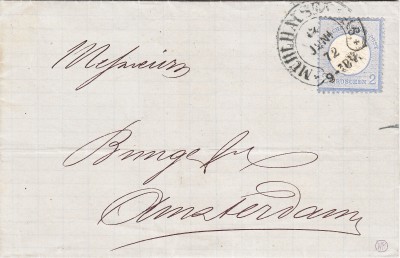 MÜHLHAUSEN
JAN
72
9-10V.
2
GROSCHEN
2
Messieurs
Bunge & Co
Amsterdam